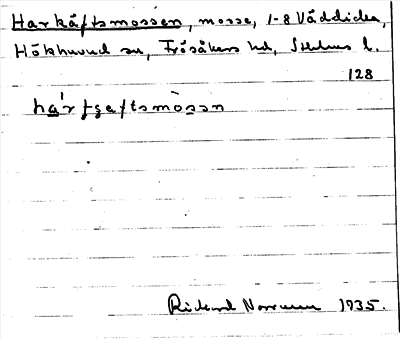 Harkäftsmossen, mosse, 1-8 Väddika,
Hökhuvud sn, Frösåkers hd, Sthlms l.
128
há̱r ʃɛeftsmòsən
Rickard Norman 1935.